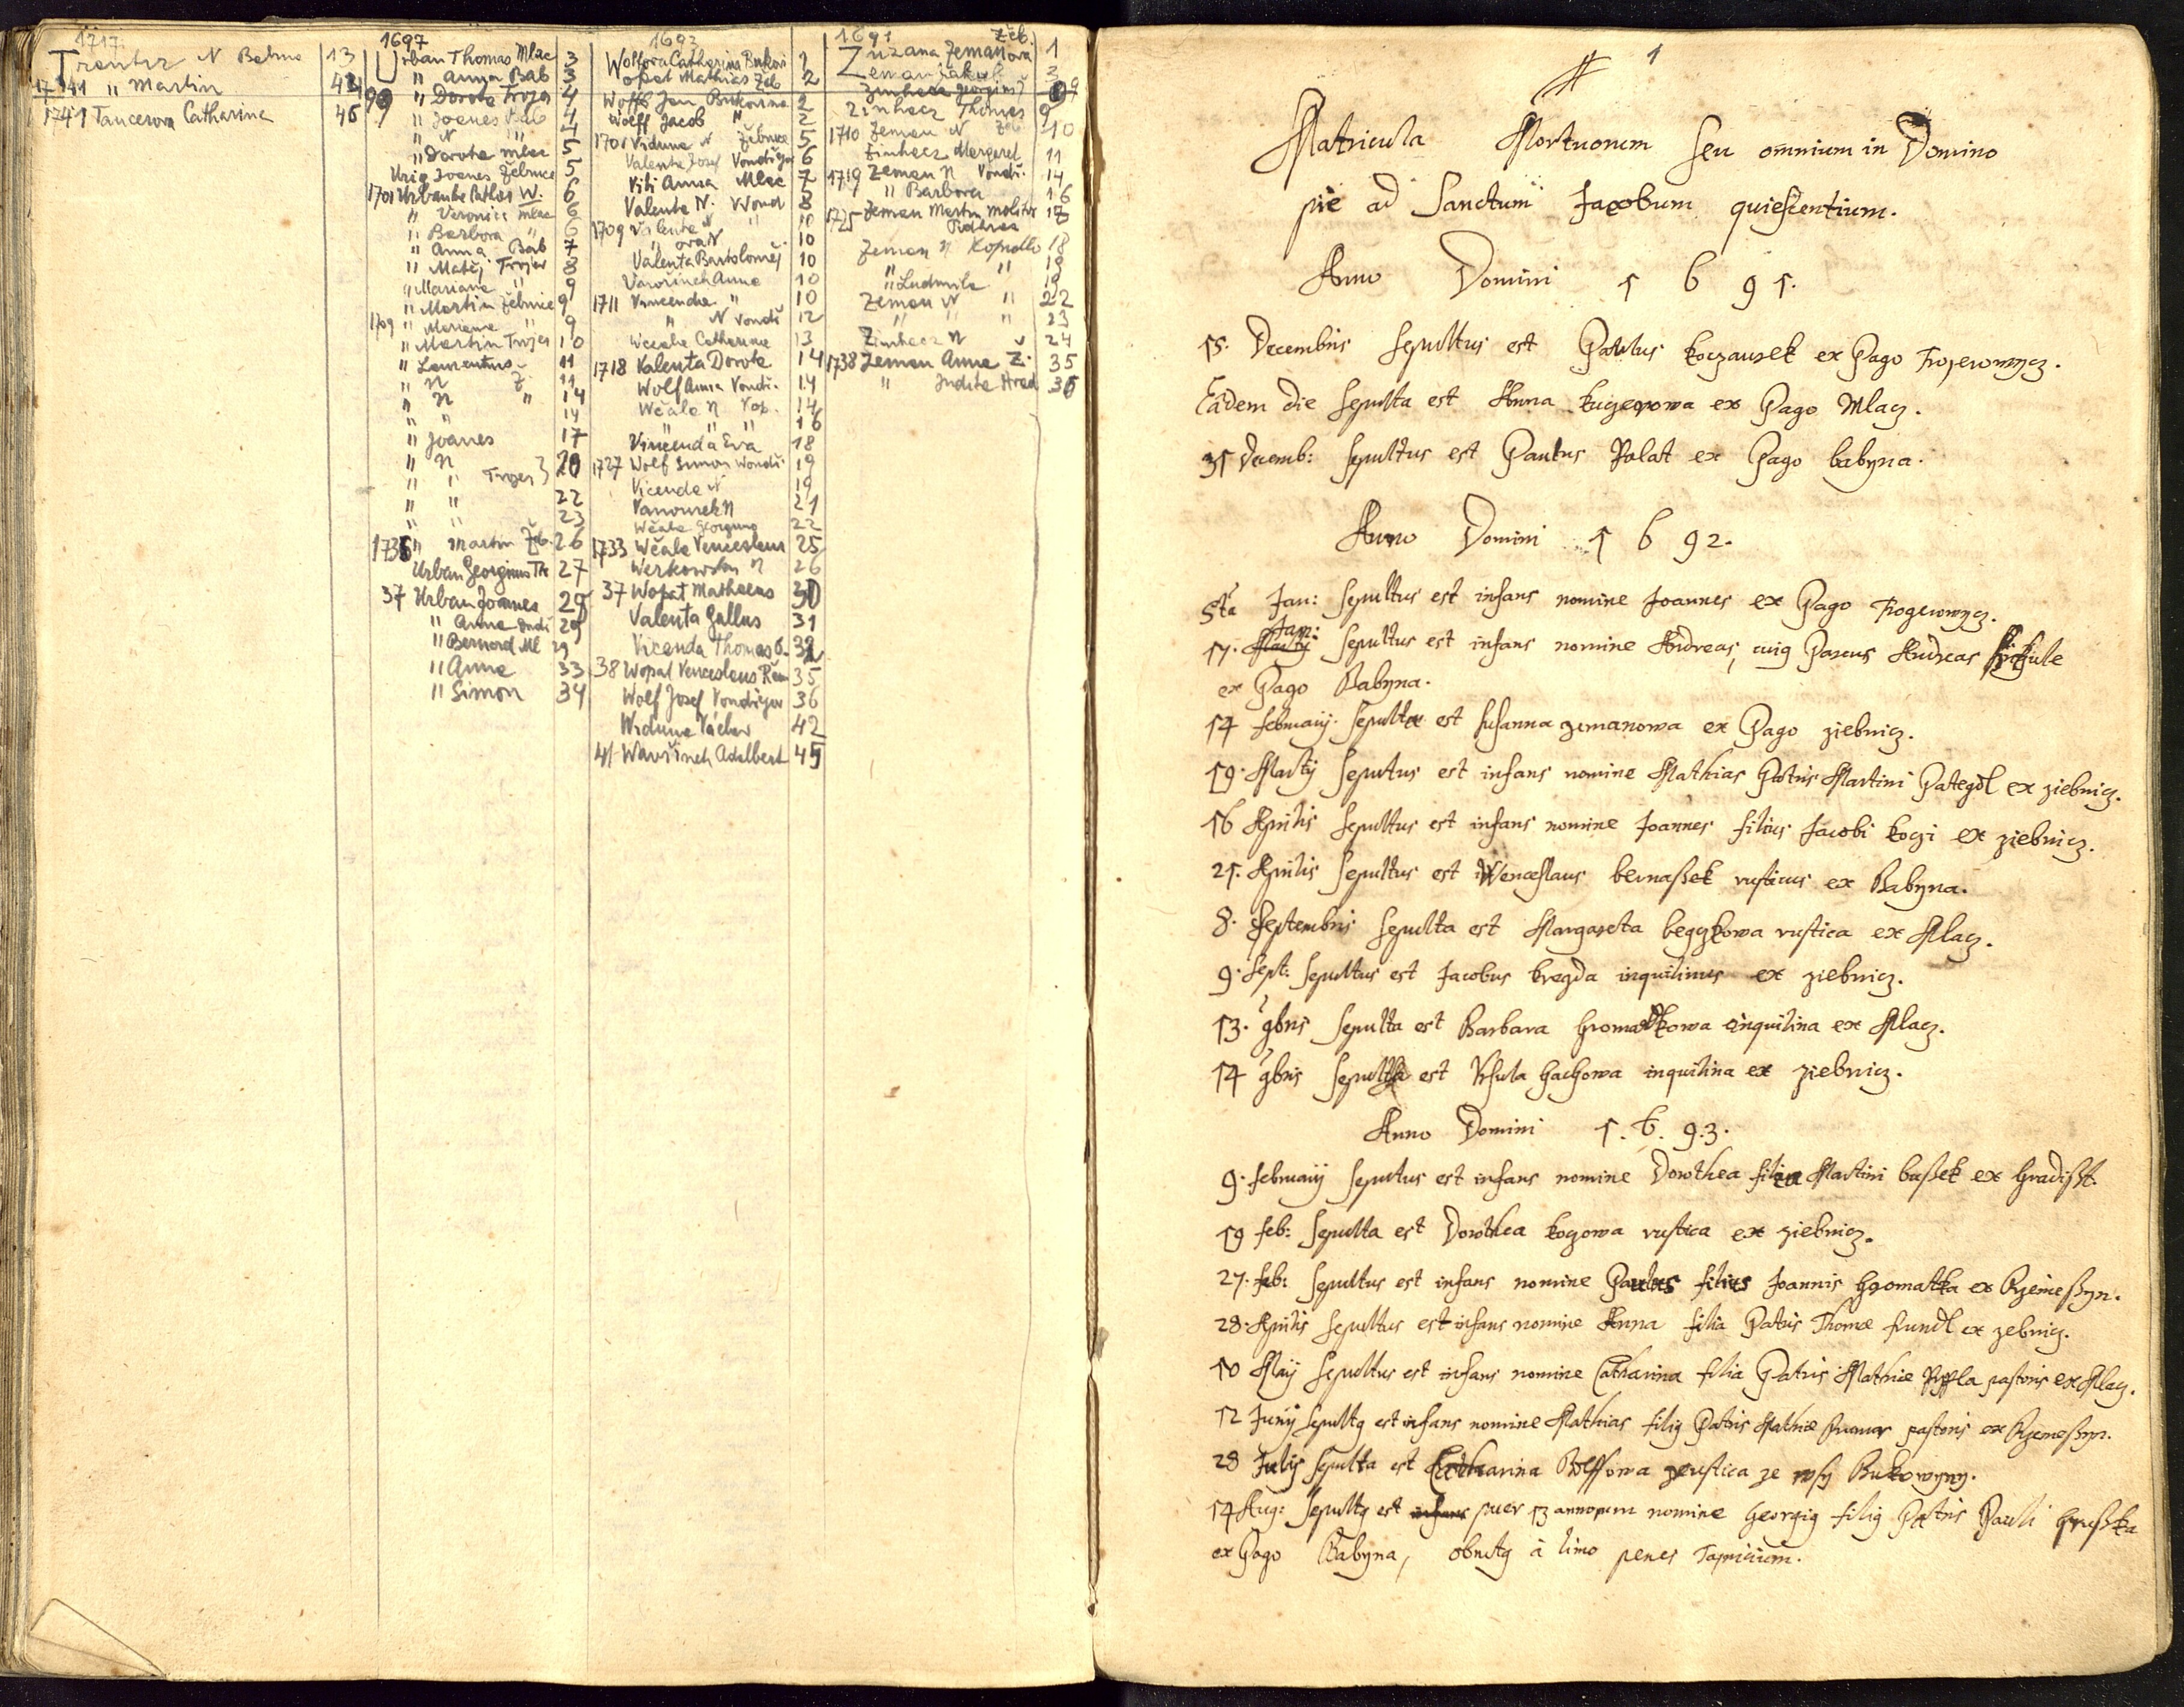 1717
Trantir N Babina 13
1741 " Martin 43
1741 Tancerova Catharina 45
1697
Urban Thomas Mlac 3
" Anna Bab 3
99 " Dorota Trojer 4
" Joanes Bab 4
" N " 4
" Dorota Mlac 5
Urig Joanes Žebnice 5
1701 Urbanka Cathar W. 6
" Veronica Mlac 6
" Barbora " 6
" Anna Bab 7
" Matěj Trojer 8
" Mariana " 9
" Martin Žebnice 9
1709 " Mariana " 9
" Martin Trojer 10
" Laurentius 11
" N Ž. 11
" N " 14
" " 14
" Joanes 17
" N
" " Trojer } 20
" " 22
" " 23
1736 " Martin Žeb. 26
Urban Georgius Tr 27
37 Urban Joannes 28
" Anna 29
" Bernard Ml 29
" Anna 33
" Simon 34
1693
Wolfova Catharina Bukovi 1
Wopat Mathias Žeb 2
Wolff Jan Bukovina 2
Wolff Jacob " 2
1701 Viduna N Žebnice 5
Valenta Josef Vondřejov 6
Anna Mlac 7
Valenta N. Wond 8
1709 Valenta N " 10
" ova N 10
Valenta Bartoloměj 10
Vavřinch Anna 10
1711 Vincenda " 10
" N Vondř 12
Wczala Catharina 13
1718 Valenta Dorota 14
Wolf Anna Vondř. 14
Wčala N Kop. 14
" " " 16
Vincenda Eva 18
1727 Wolf Simon Wondř. 19
Vicenda N 19
Vanourek N 21
Wčala Georgius 22
1733 Wčala Venceslaus 25
Werkowsky N 26
37 Wopat Mathaeus 30
Valenta Gallus 31
Vicenda Thomas 32
38 Wopat Venceslaus Řem 35
Wolf Josef Vondřejov 36
Viduna Václav 42
41 Wavřinch Adalbert 45
1691 Žeb.
Zuzana Zemanova 1
Zeman Jakub 3
Zinhacz Georgius 9
Zinhacz Thomas 9
1710 Zeman N Žeb 10
Zinhacz Margaret 11
1719 Zeman N Vondř. 14
" Barbora 16
1725 Zeman Martin Molitor 18
Zeman N Kopidlo 18
" " 19
" Ludmila 19
Zeman N " 22
" " " 23
Zinhacz N 24
1738 Zeman Anna Ž. 35
" Judita Hrad 36
1
Matricula Mortuorum seu omnium in Domino
pie ad Sanctum Jacobum quiescentium.
Anno Domini 1691.
15. Decembris Sepultus est Paulus koczausek ex Pago Trojerowicz.
Eâdem die Sepulta est Anna kuczerowa ex Pago Mlacz.
31 Decemb: Sepultus est Paulus Palat ex Pago babyna.
Anno Domini 1692.
5ta Jan: Sepultus est infans nomine Joannes ex Pago Trogerowicz.
Jan:
17. Martÿ Sepultus est infans nomine Andreas, cuiq Parens Andreas
ex Pago Babyna.
14 februarÿ. Sepulta est Susanna zemanowa ex Pago ziebnicz.
19. Martÿ Sepultus est infans nomine Mathias Patris Martini Pategdl ex ziebnicz.
16 Aprilis Sepultus est infans nomine Joannes filius Jacobi koczi ex ziebnicz.
21. Aprilis Sepultus est Wenceslaus bernaßek rusticus ex Babyna.
8. Septembris Sepulta est Margareta begczkowa rustica ex Mlacz.
9. Sept: Sepultus est Jacobus kregda inquilinus ex ziebnicz.
13. 9bris Sepulta est Barbara hromadkowa inquilina ex Mlacz.
14 9bris Sepulta est Ursula hachowa inquilina ex ziebnicz.
Anno Domini 1. 6. 9. 3.
9. februarÿ Sepultus est infans nomine Dorothea filia Martini bußek ex hradißt.
19 feb: Sepulta est Dorothea koczowa rustica ex ziebnicz.
27. feb: Sepultus est infans nomine Paulus filius Joannis hromatka ex Rzemeßyn.
28. Aprilis Sepultus est infans nomine Anna filia Patris Thomæ frundl ex zebnicz.
10 Maÿ Sepultus est infans nomine Catharina filia Patris Mathiæ pastoris ex Mlacz.
12 Junÿ Sepultq est infans nomine Mathias filiq Patris Mathiæ pastoris ex Rzemeßyn.
28 Julÿ Sepulta est Catharina Wolffowa rustica ze wsy Bukowyny.
14 Aug: Sepultq est infans puer 13 annorum nomine Georgiq filiq Patris Pauli hrußka
ex Pago Babyna, obrutq à limo penes